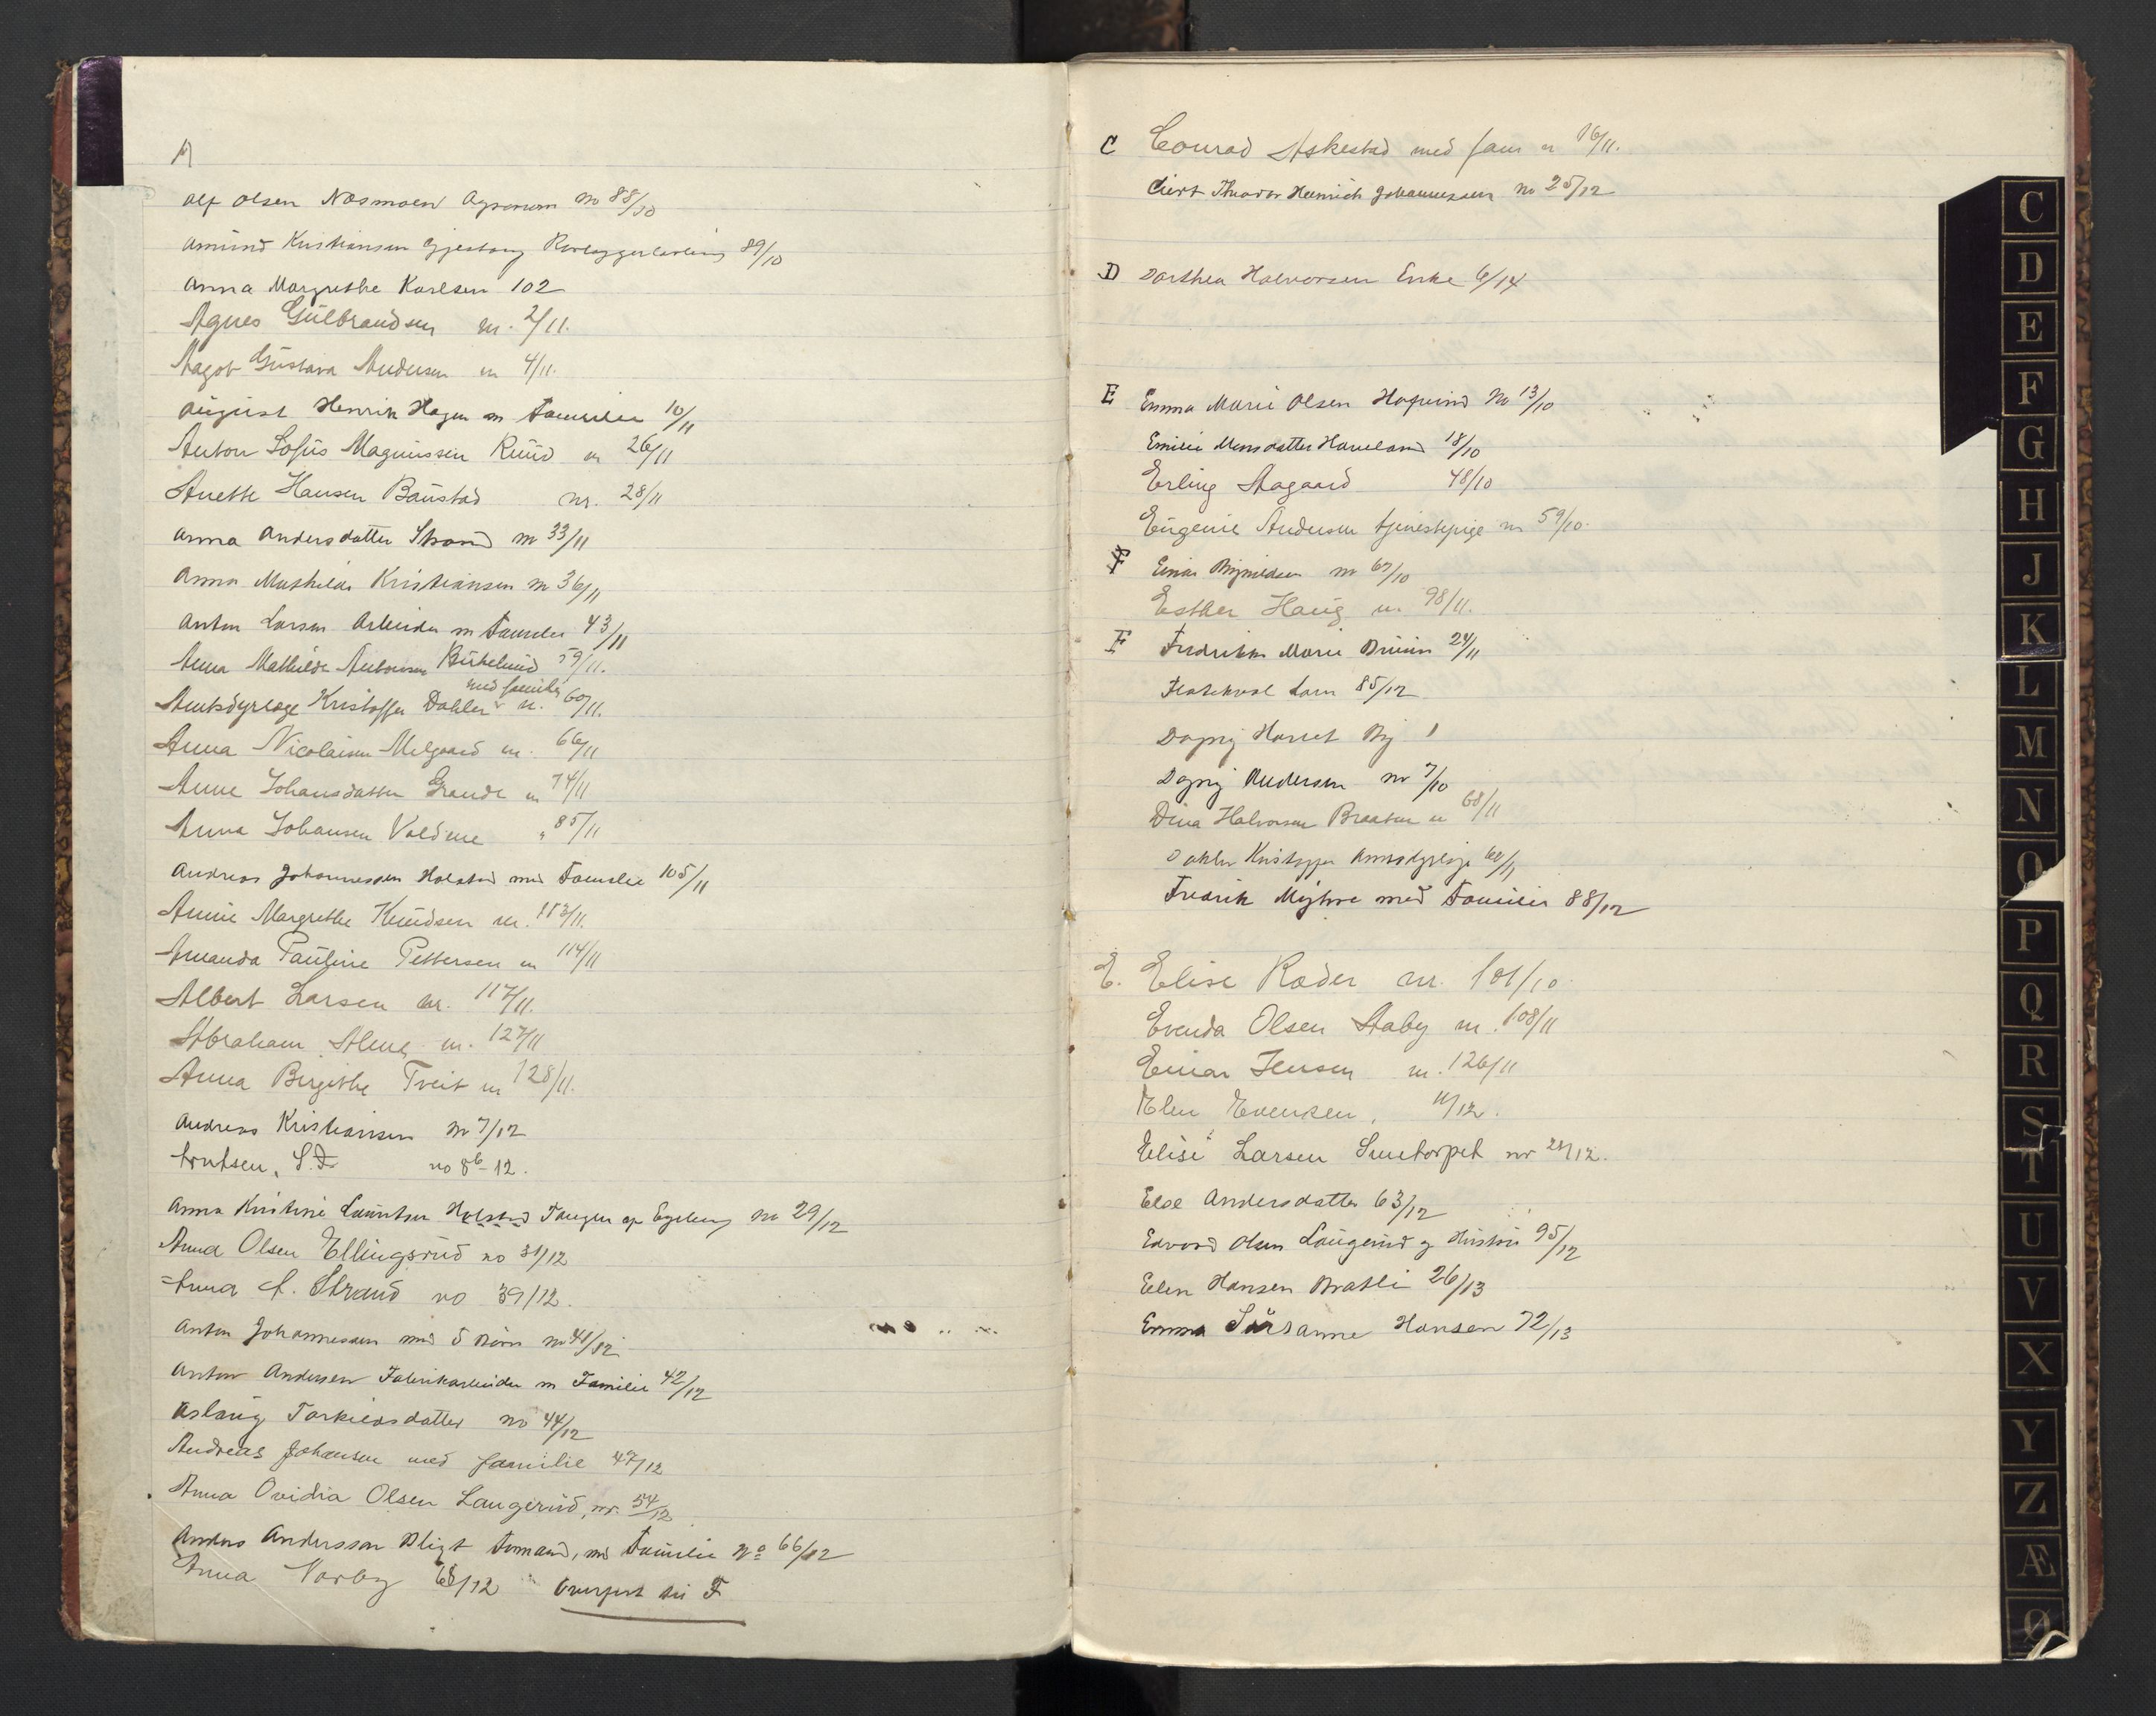 A
Alf Olsen Næsmoen Agronom No 88/10
Amund Kristiansen Gjestang 89/10
Anna Margrethe Karlsen 102
Agnes Gulbrandsen nr. 2/11.
Aagot Gustava Andersen nr 4/11.
August Henrik Hagen m Familie 10/11
Anton Sofus Magnussen Ruud nr 26/11
Anette Hansen Baustad nr. 28/11
Anna Andersdatter Strand nr 33/11
Anna Mathilde Kristiansen nr 36/11
Anton Larsen Arbeider m Familie 43/11
Anna Mathilde Antonsen 59/11.
med familie
Amtsdyrlæge Kristoffer Dahler nr. 60/11.
Anna Nicolaisen Melgaard nr. 66/11
Anne Johansdatter Grande nr 74/11
Anna Johansen Voldene " 85/11
Andreas Johannessen Holstad med Familie 105/11
Annie Margrethe Knudsen nr. 113/11.
Amanda Pauline Pettersen nr 114/11
Albert Larsen nr. 117/11.
Abraham nr. 127/11
Anna Birgithe Tveit nr 128/11.
Andreas Kristiansen nr 7/12
Arntsen, S. F. no 8b-12.
Anna Kristine Lauritsen Holstad nr 29/12
Anna Olsen Ellingsrud no 31/12
Anna A. Strand no 39/12.
Anton Johannessen med 5 Børn no 41/12
Anton Andersen Fabrikarbeider m Familie 42/12
Aslaug Tarkielsdatter no 44/12
Andreas Johansen med familie 47/12
Anna Ovidia Olsen Langerud, nr. 54/12
Anders Andersson med Familie No 66/12
Anna Narby 68/12 Overført til F
C Conrad Askestad med fam nr 16/11.
Theodor Heinrich Johannessen no 25/12
D Dorthea Halvorsen Enke 6/14
E Emma Marie Olsen Hagelund No 13/10
Emilie Monsdatter Haveland 18/10
Erling Aagaard 48/10
Eugenie Andersen tjenestepige nr 59/10.
F Einar nr 67/10
Esther Haug nr. 98/11.
F Fredrikke Marie 24/11
Lars 85/12
Dagny Harriet 1
Dagny Andersen nr 7/10
Dina Halvorsen Braaten nr 68/11
Dahler Kristoffer Amtsdyrlæge 60/11
Fredrik Myhre med Familie 88/12
E. Elise Roder nr. 101/10.
Evenda Olsen Aaby nr. 108/11
Einar Jensen nr. 126/11
Elen Evensen, 11/12.
Elise Larsen nr 24/12.
Else Andersdatter 63/12
Edvard Olsen Laugerud og Hustru 95/12
Elen Hansen Bratli 26/13
Emma Susanne Hansen 72/13
C
D
E
F
G
H
J
K
L
M
N
O
P
Q
R
S
T
U
V
X
Y
Z
Æ
Ø